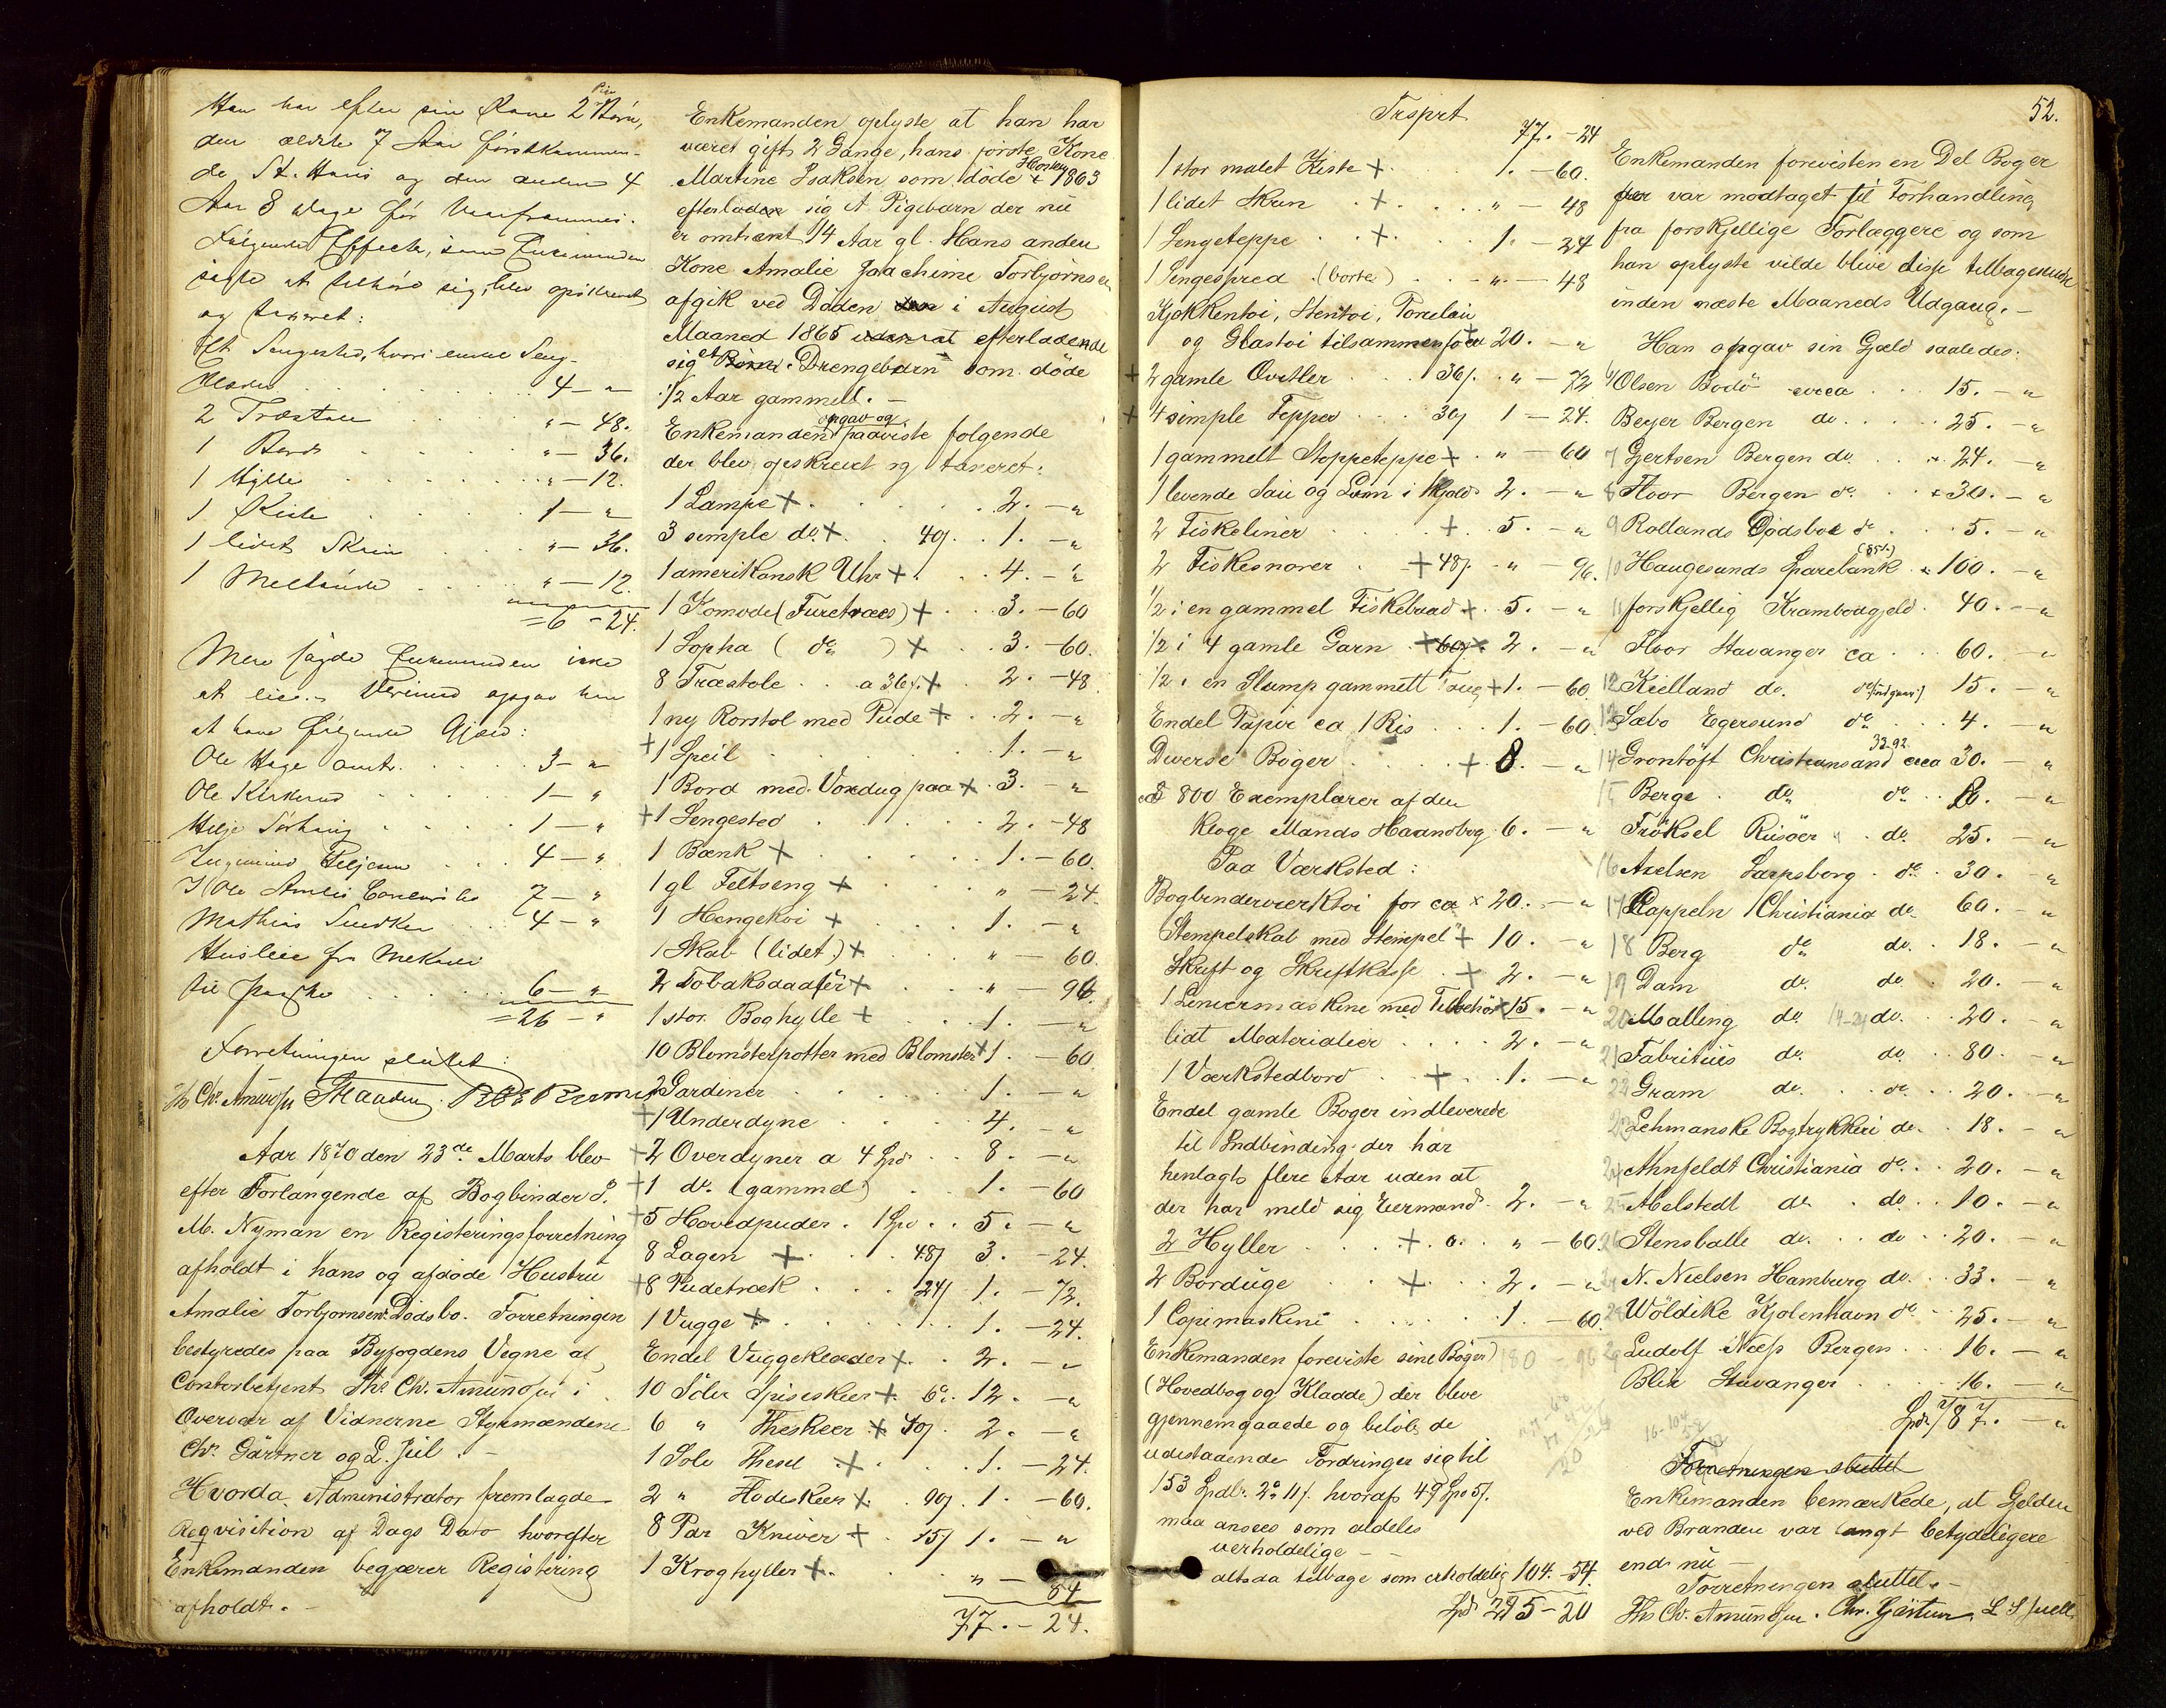 Han har efter sin Kone 2 Pigebørn,
den ældste 7 Aar førstkommen-
de St. Hans og den anden 4
Aar 8 Dage før Vaarfrumes.
Følgende Effecter, som Enkemanden
sagde at tilhøre sig, blev opskrevet
og taxeret:
Et Sengested, hvori endel Seng-
klæder . . . 4 - "
2 Træstole . . " - 48.
1 Bord . . " - 36.
1 Hylle . . " - 12.
1 Kiste . . 1 - "
1 lidet Skrin . . " - 36.
1 Meltønde . . " - 12.
= 6 - 24.
Mere sagde Enkemanden ikke
at eie. Derimod opgav han
at have følgende Gjæld:
Ole Hage . . 3 - "
Ole Kirkerud . . 1 - "
. . 1 - "
. . 4 - "
7 - "
Mathias . . 4 - "
Husleie fra
til Paaske . . 6 - "
= 26 - "
Forretningen sluttet:
Ths Chr. Amundsen
Aar 1870 den 23de Marts blev
efter Forlangende af Bogbinder P.
M. Nyman en Registeringsforretning
afholdt i hans og afdøde Hustru
Amalie Torbjørnsens Dødsbo. Forretningen
bestyredes paa Byfogdens Vegne af
Contorbetjent Ths. Chr. Amundsen i
Overvær af Vidnerne Styrmændene
Chr. Gärtner og L. Juel. -
Hvorda Administrator fremlagde
Reqvisition af Dags Dato hvorefter
Enkemanden begjærer Registering
afholdt. -
Enkemanden oplyste at han har
været gift 2 Gange, hans første Kone
Martine Isaksen som døde Høsten 1863
efterlader sig et Pigebarn der nu
er omtrent 14 Aar gl. Hans anden
Kone Amalie Joachime Torbjørnsen
afgik ved Døden i August
Maaned 1865 efterladende
sig et Drengebarn som døde
1/2 Aar gammel. -
Enkemanden opgav og paaviste følgende
der blev opskrevet og taxeret:
1 Lampe + . . 2. - "
3 simple do. + . 40 . 1. - "
1 amerikansk Uhr + . . 4. - "
1 Komode (Furetræes) + . . 3. - 60
1 Sopha ( do ) + . . 3. - 60.
8 Træstole . . a 36 . + . 2. - 48
1 ny Rorstol med Pude + . . 2. - "
+ 1 Speil . . 1. - "
1 Bord med Voxdug paa + . 3. - "
+ 1 Sengested . . 2. - 48
1 Bænk + . . 1. - 60.
1 gl Feltseng + . . " - 24.
1 Hængekøi + . . 1. - "
1 Skab (lidet) + . . " - 60.
2 Tobaksdaaser + . . " - 96.
1 stor Boghylle + . . 1. - "
10 Blomsterpotter med Blomster + 1. - 60.
2 Gardiner . . 1. - "
+ 1 Underdyne . . 4. - "
+ 2 Overdyner a 4 Spd . . 8. - "
+ 1 do. (gammel) . . 1. - 60
+ 5 Hovedpuder . 1 Spd . . 5. - "
8 Lagen + . . 48 3. - 24.
+ 8 Pudetræk . . 24 1. - 72.
1 Vugge + . . 1. - 24.
Endel Vuggeklæder + . . 2. - "
10 Sølv Spiseskeer + . 6 . 12. - "
6 " Theskeer + 40 . 2. - "
1 Sole Thesil + . . 1. - 24.
2 " Flødeskeer + . 90 . 1. - 60.
8 Par Kniver + . 15 1. - "
1 Kroghylle + . . " - 54
77. - 24.
52.
Trsprt 77. - 24
1 stor malet Kiste + . . 1. - 60.
1 lidet Skrin . + . . " - 48
1 Sengeteppe . . + . . 1. - 24
1 Sengespred . (borte) . . " - 48
Kjøkkentøi, Stentøi, Porcelæn
og Glastøi tilsammen for 20. - "
+ 2 gamle Ovitler . . 36 . " - 72
+ 4 simple Tepper . . 30 1 - 24.
1 gammelt Stoppeteppe + . " - 60
1 levende Sau og Lam i Kjøld 2. - "
2 Fiskeliner . . + . 5. - "
2 Fiskesnører . . + 48 . " - 96.
1/2 i en gammel Fiskebaad + . 5. - "
1/2 i 4 gamle Garn . + 60 . 2. - "
1/2 i en Slump gammelt Toug + 1. - 60.
Endel Papir ca 1 Ris . . 1. - 60.
Diverse Bøger . . + 8. - "
800 Exemplarer af den
kloge Mands Haandbog . 6. - "
Paa Værksted:
Bogbinderværktøi for ca + 20. - "
Stempelskab med Stempel + 10. - "
Skrift og Skriftkasse . + 2. - "
1 Liniermaskine med Tilbehør + 15. - "
lidt Materialier . . 2. - "
1 Værkstedbord . + . 1. - "
Endel gamle Bøger indleverede
til Indbinding der har
henlagt flere Aar uden at
der har meld sig Eiermand . 2. - "
2 Hyller . . + . " - 60.
2 Borduge . . + . 2. - "
1 Copimaskine . . 1. - 60.
Enkemanden foreviste sine Bøger 180 - 96
(Hovedbog og Kladde) der bleve
gjennemgaaede og beløb de
udestaaende Fordringer sig til
153 Spdlr. 2 11 . hvoraf 49 Spd 5 .
maa ansees som aldeles
uerholdelige -
altsaa tilbage som erholdelig 104. - 54.
Spd 295 - 20
Enkemanden forevisten en Del Bøger
var modtaget til Forhandling
fra forskjellige Forlæggere og som
han oplyste vilde blive disse tilbagesendt
inden næste Maaneds Udgang. -
Han opgav sin Gjæld saaledes:
Olsen Bodø circa . . 15. - "
Beyer Bergen do . . 25. - "
7 Gjertsen Bergen do . . 24. - "
8 Floor Bergen do . . 30. - "
9 Rollands Dødsbo do . . 5. - "
10 Haugesunds Sparebank (85 ) 100. - "
11 forskjellig Krambodgjeld . 40. - "
Floor Stavanger ca . . 60. - "
12 Kielland do. do 15. - "
13 Sæbø Egersund do . . 4. - "
14 Grontöft Christiansand circa 32-92 30. - "
15 Berge . do do . . - "
Tröksel Risöer . do 25. - "
16 Axelsen Sarpsborg . do . 30. - "
17 Cappeln Christiania do. 60. - "
18 Berg do do. . 18. - "
19 Dam do. do. 20. - "
20 Malling do. 14-24 do. . 20. - "
21 Fabritius do. do. . 80. - "
22 Gram do. . do. . 20. - "
23 Lehmanske Bogtrykkeri do. . 18. - "
24 Ahnfeldt Christiania do. . 20. - "
25 Abelstedt do . do. . 10. - "
26 Stensballe do. . do . 20. - "
27 N. Nielsen Hamburg do. . 33. - "
28 Wöldike Kjøbenhavn do . 25. - "
29 Ludolf Næss Bergen . . 16. - "
Blix Stavanger . . 16. - "
Spd. 787. - "
Forretningen sluttet
Enkemanden bemærkede, at Gjelden
ved Branden var langt betydeligere
end nu -
Forretningen sluttet. -
Ths Chr. Amundsen. Chr. Gärtner L S Juell